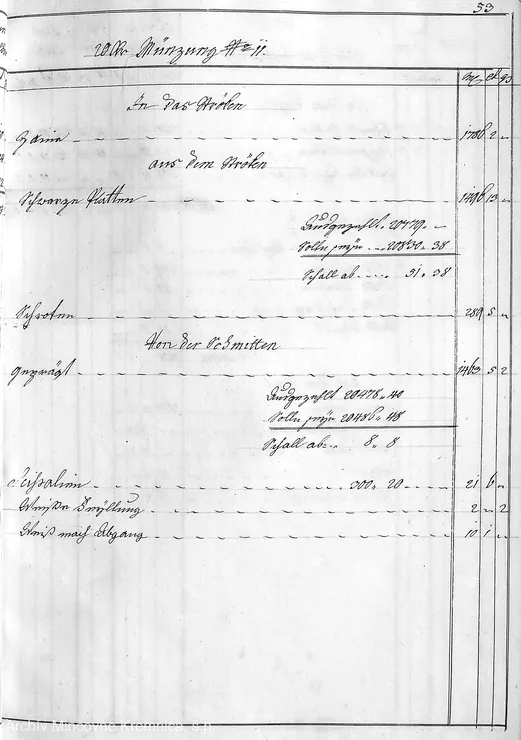 53
20 Xr Münzung No 11.
In das Ströken
Zaine 1786 2 "
aus dem Ströken
Schwarze Platten 1496 13 "
Ausgezahlt. 20779. —
Solln seyn 20830. 38
Schall ab 51. 38
Schroten 289 5 "
Von der Schmitten
geprägt 1463 5 2
Ausgezahlt 20478. 40
Solln seyn 20486. 48
Schall ab 8. 8
Cißalien 300. 20 21 6 "
Weiße 2 " 2
Weiß nach Abgang 10 1 "
Archiv Mincovne Kremnica, š.p.